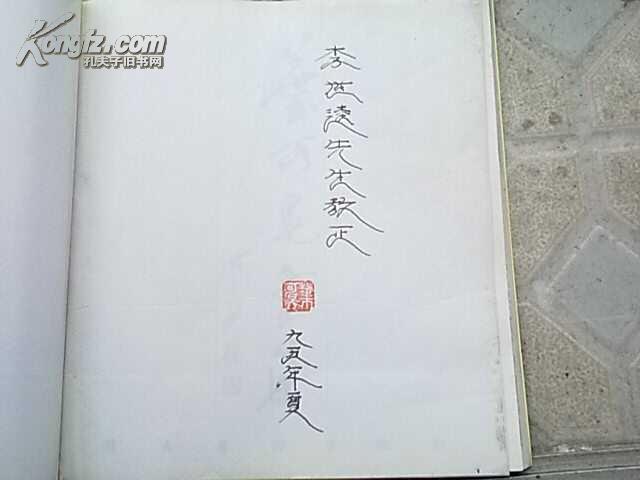 Kongfz.com
孔夫子旧书网
李延陵先生教正
九五年夏